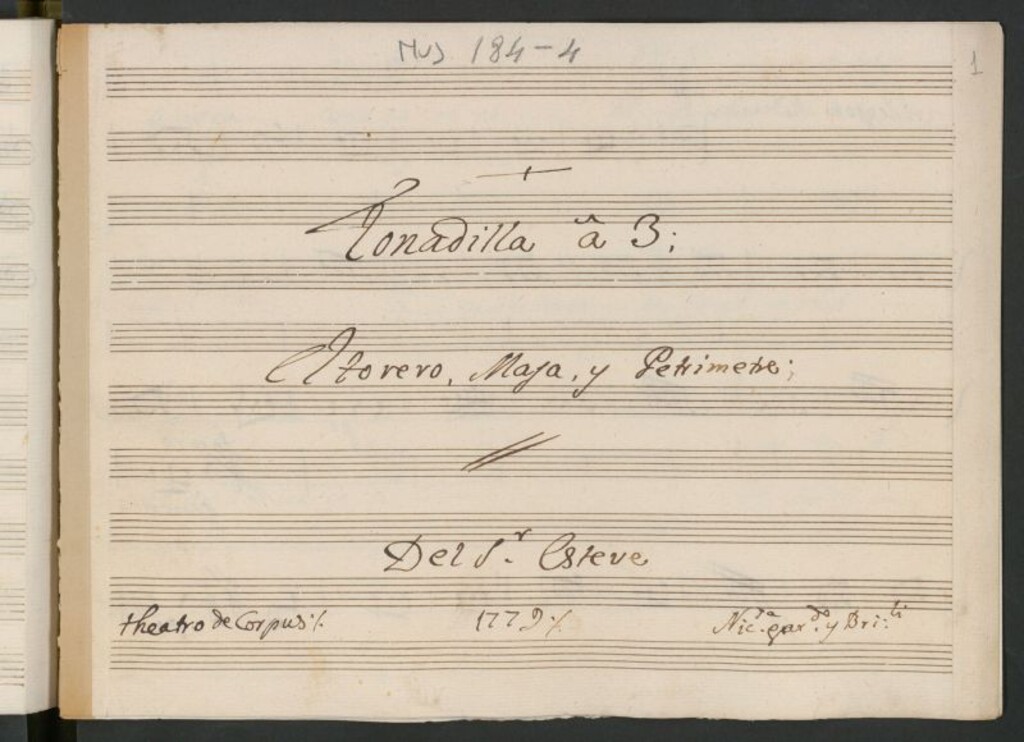 Mus 184-4
1
Tonadilla â 3;
El torero, Maja, y Petrimetre;
Del Sʳ. Esteve
theatro de Corpus;/. 1779;/. Nic.ᵗᵃ gar.ᵈᵒ y Bri.ˡⁱ